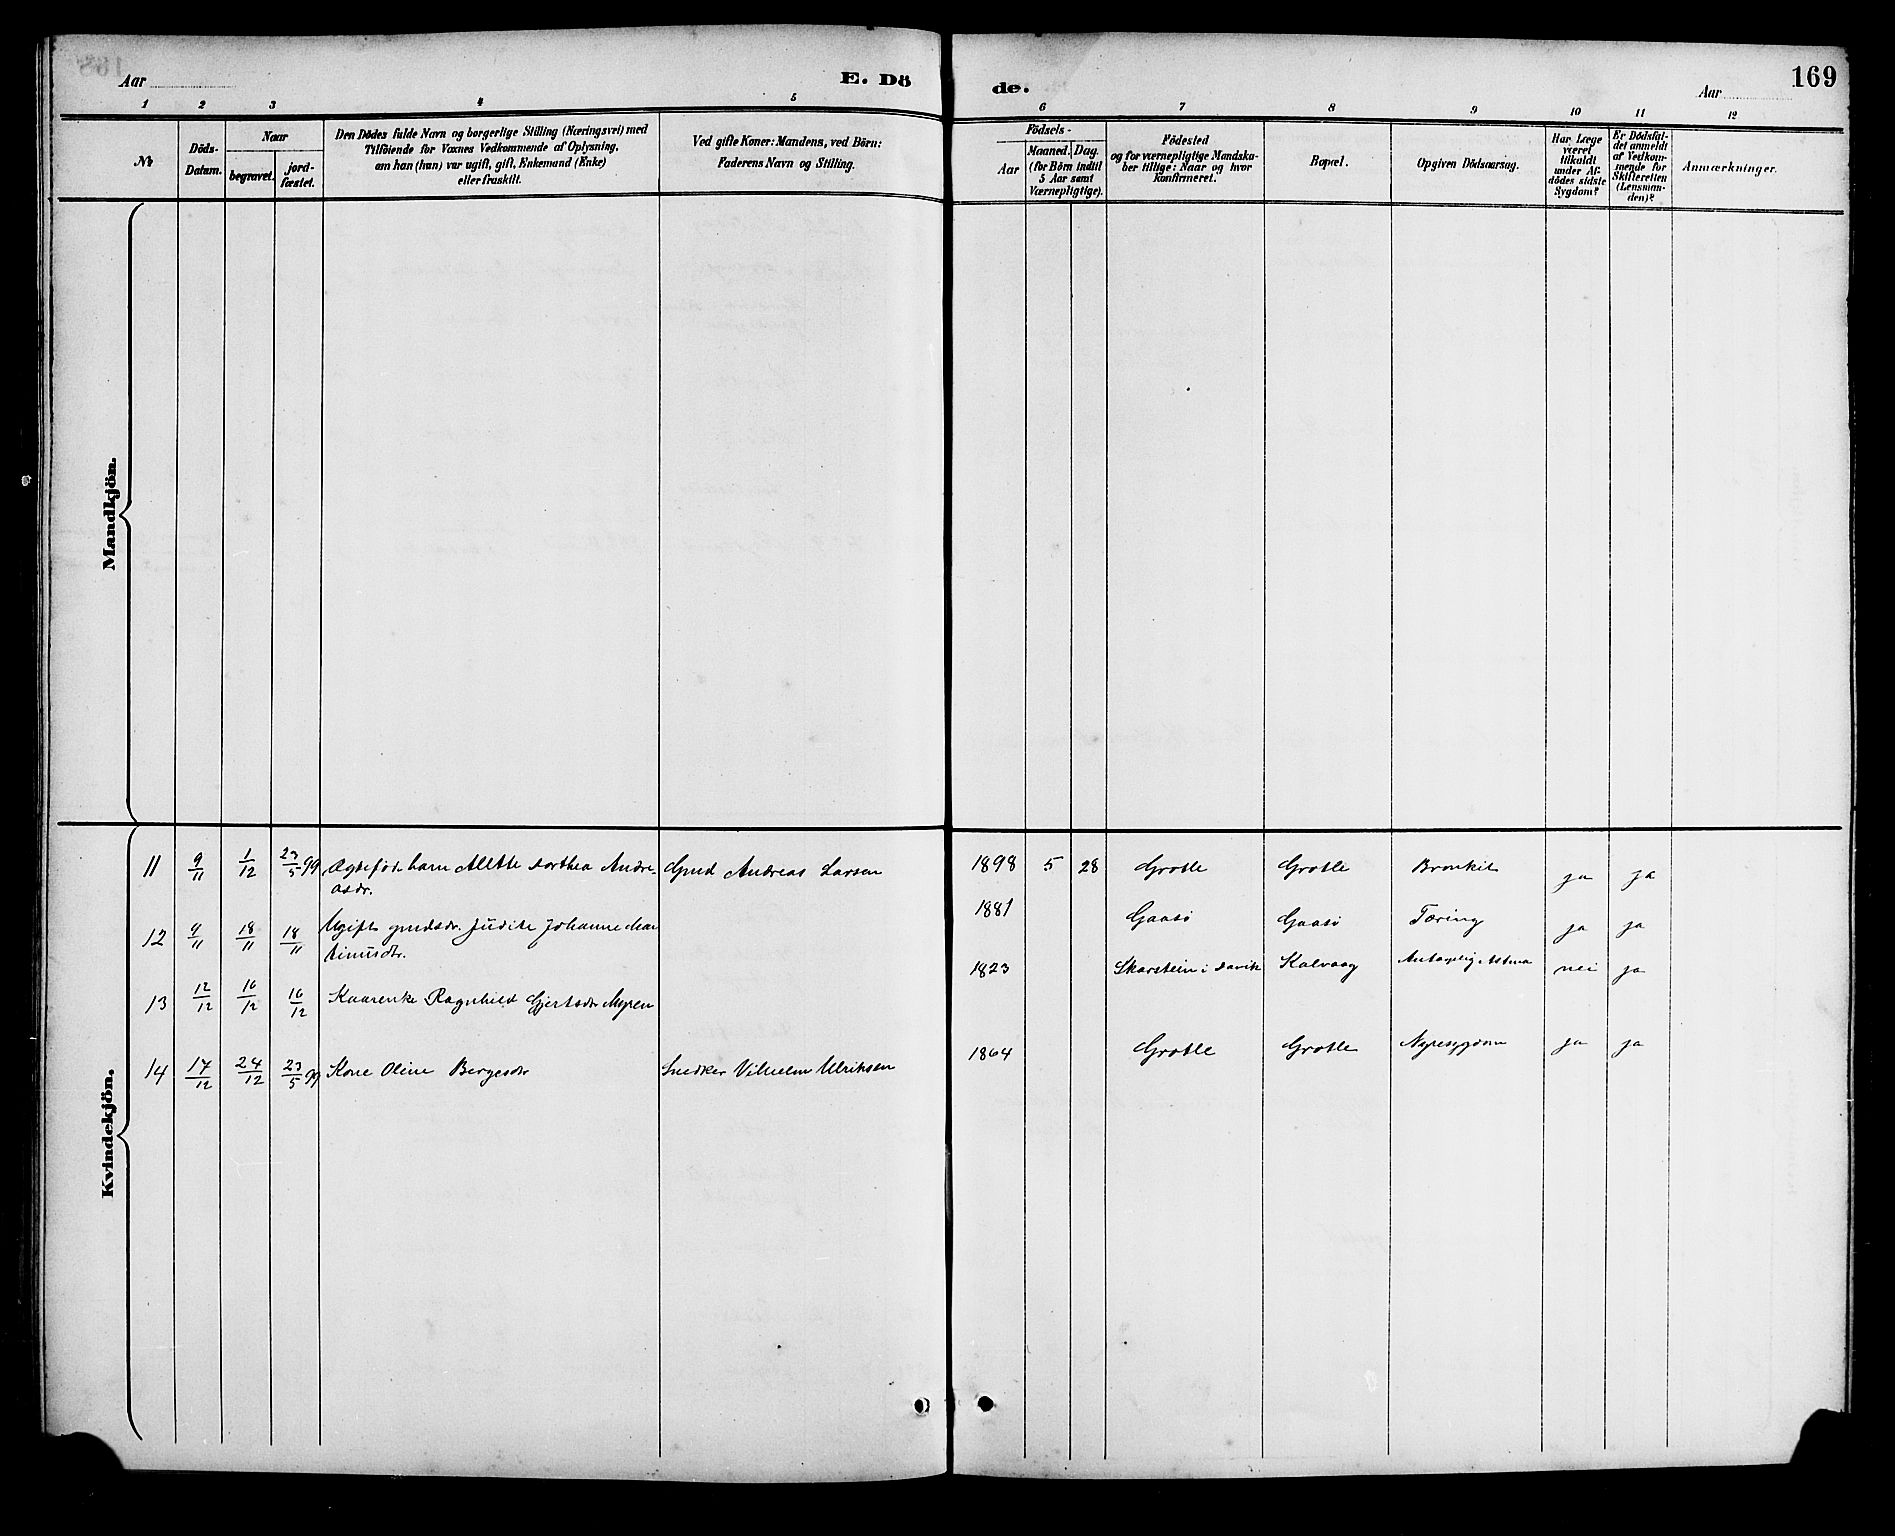 Aar
E. Dö
de.
Aar
169
1 2 3 4 5 6 7 8 9 10 11 12
№
Döds-
Datum.
Naar
begravet.
jord-
fæstet.
Den Dödes fulde Navn og borgerlige Stilling (Næringsvei) med
Tilföiende for Voxnes Vedkommende af Oplysning,
om han (hun) var ugift, gift, Enkemand (Enke)
eller fraskilt.
Ved gifte Koner: Mandens, ved Börn:
Faderens Navn og Stilling.
Födsels-
Aar
Maaned. Dag.
(for Börn indtil
5 Aar samt
Værnepligtige).
Födested
og for værnepligtige Mandska-
ber tillige: Naar og hvor
konfirmeret.
Bopæl.
Opgiven Dödsaarsag.
Har Læge
været
tilkaldt
under Af-
dödes sidste
Sygdom?
Er Dödsfal-
det anmeldt
af Vedkom-
mende for
Skifteretten
(Lensman-
den)?
Anmærkninger.
Mandkjön.
Kvindekjön.
11 9/11 1/12 23/5 99 Ægtefödt barn Alette Dorthea Andre- Gmd Andreas Larsen 1898 5 28 Grotle Grotle Bronkit ja ja
asdr.
12 9/11 18/11 18/11 Ugift gmdsdr. Judite Johanne Mar 1881 Gaasö Gaasö Tæring ja ja
tinusdr.
13 12/12 16/12 16/12 Kaarenke Ragnhild Gjertsdr Myren 1823 Skarstein i Davik Kalvaag Antagelig Astma nei ja
14 17/12 24/12 23/5 99 Kone Oline Bergesdr Snedker Vilhelm Ulriksen 1864 Grotle Grotle Nyresygdom ja ja